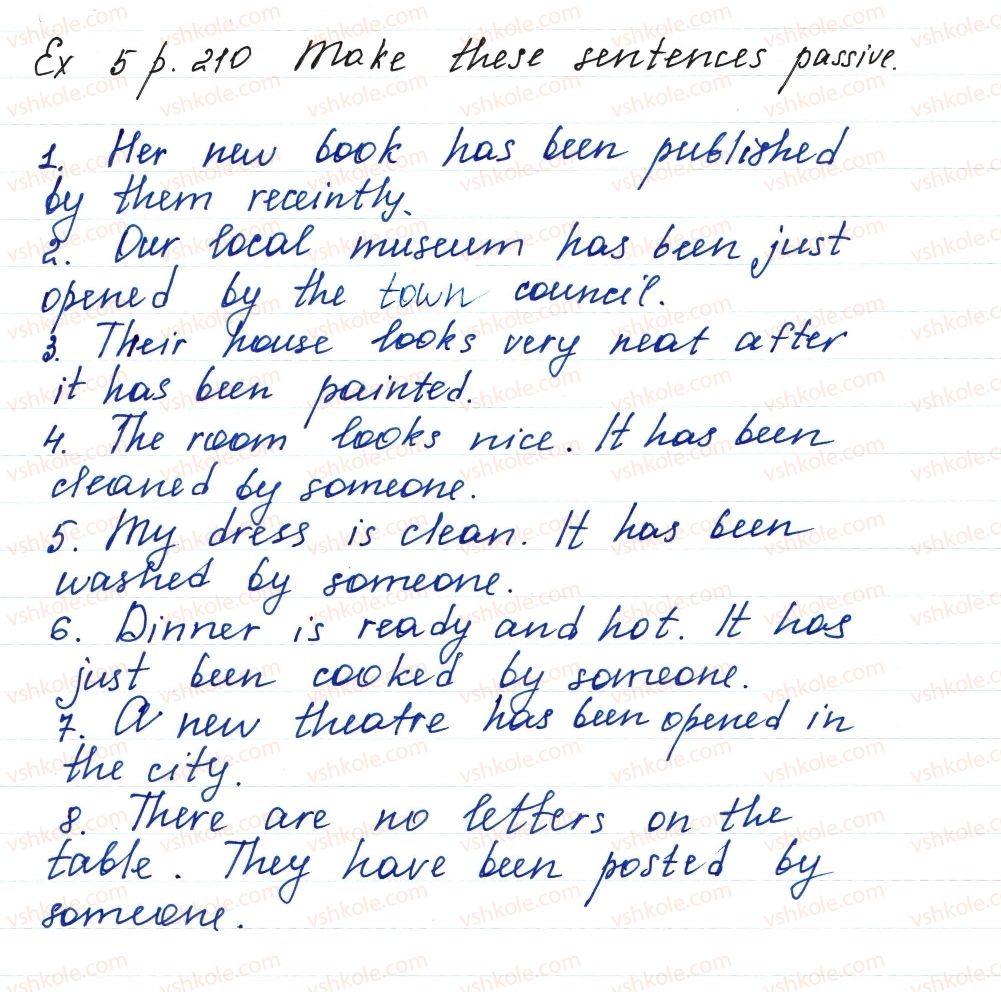 Ex 5 p. 210 Make these sentences passive.
1. Her new book has been published
by them receintly.
2. Our local museum has been just
opened by the town council.
3. Their house looks very neat after
it has been painted.
4. The room looks nice. It has been
cleaned by someone.
5. My dress is clean. It has been
washed by someone.
6. Dinner is ready and hot. It has
just been cooked by someone.
7. A new theatre has been opened in
the city.
8. There are no letters on the
table. They have been posted by
someone.
vshkole.com